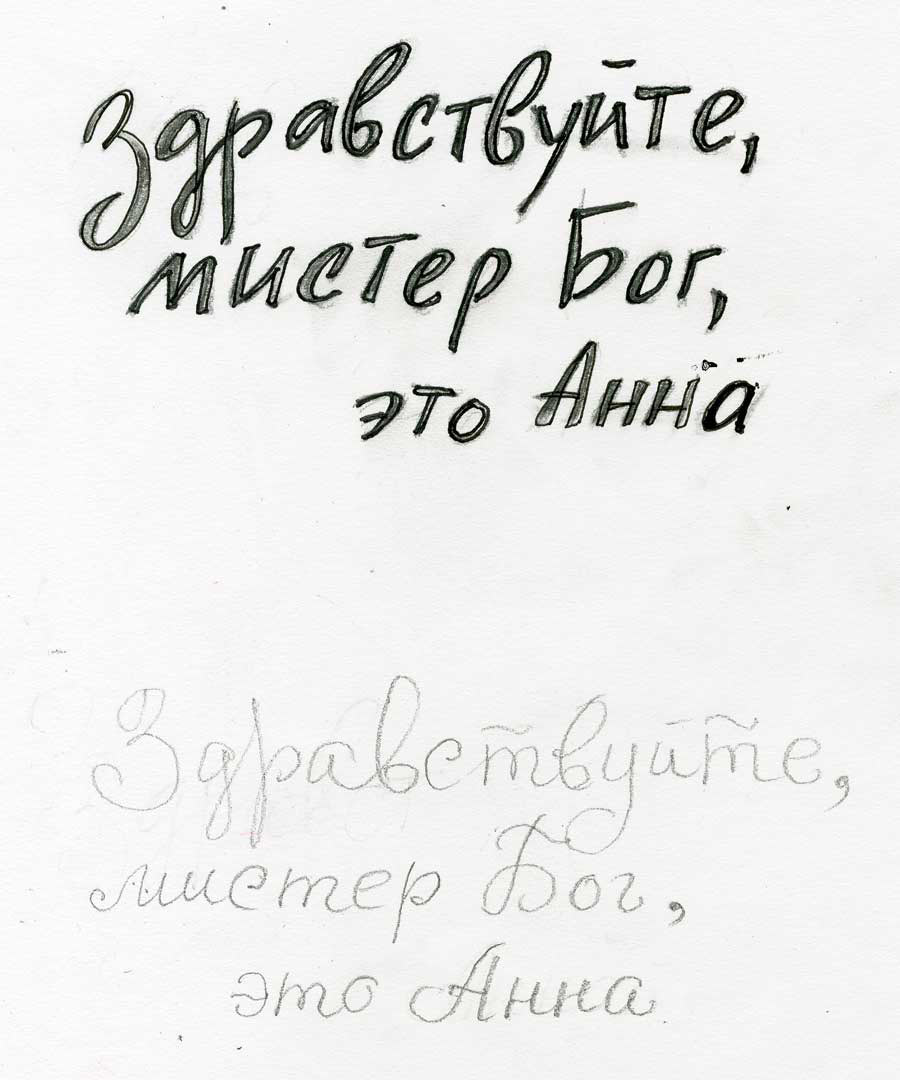 Здравствуйте,
мистер Бог,
это Анна
Здравствуйте,
мистер Бог,
это Анна